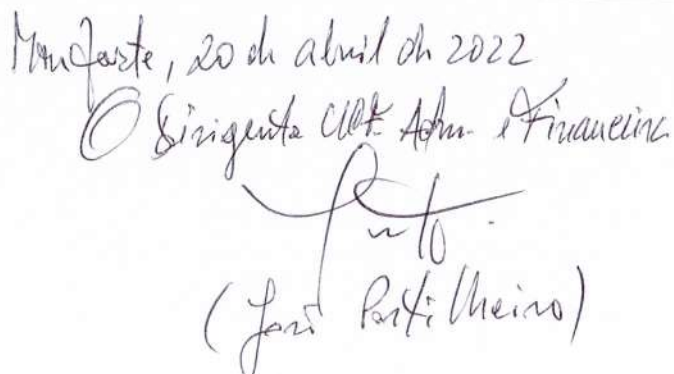 Monforte, 20 de abril de 2022
O Dirigente Adm. e Financeira
(José Partilheiro)